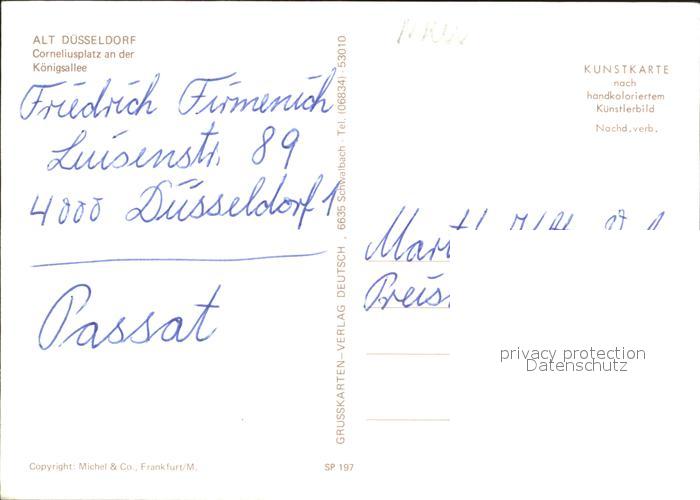 ALT DÜSSELDORF
Corneliusplatz an der
Königsallee
Friedrich Firmenich
Luisenstr. 89
4000 Düsseldorf 1
Passat
Copyright: Michel & Co., Frankfurt/M.
SP 197
GRUSSKARTEN-VERLAG DEUTSCH, 6635 Schwalbach · Tel. (06834) 53010
KUNSTKARTE
nach
handkoloriertem
Künstlerbild
Nachd. verb.
Preis
privacy protection
Datenschutz